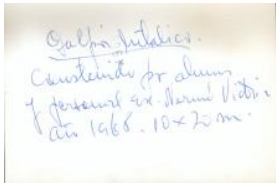 Galpón metálico.
Construido por alumn.
y personal Ex. Normal Victoria
año 1968. 10 x 20 m.